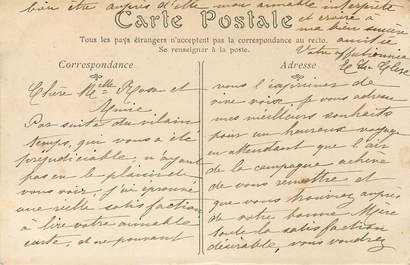 Chère Mlle Rosa et
Amice
Par suite du vilain
temps, qui vous a été
préjudiciable, n'ayant
pas eu le plaisir de
vous voir, j'ai éprouvé
une réelle satisfaction
à lire votre aimable
carte, et ne pouvant
vous l'exprimer de
vive voix, je vous adresse
mes meilleurs souhaits
pour un heureux voyage
en attendant que l'air
de la campagne achève
de vous remettre et
que vous trouviez auprès
de votre bonne Mère
toute la satisfaction
désirable, vous voudrez
bien être auprès d'elle mon aimable interprète
et croire à
ma bien sincère
amitié
Votre affectionnée
Carte Postale
Tous les pays étrangers n'acceptent pas la correspondance au recto.
Se renseigner à la poste.
Correspondance
Adresse